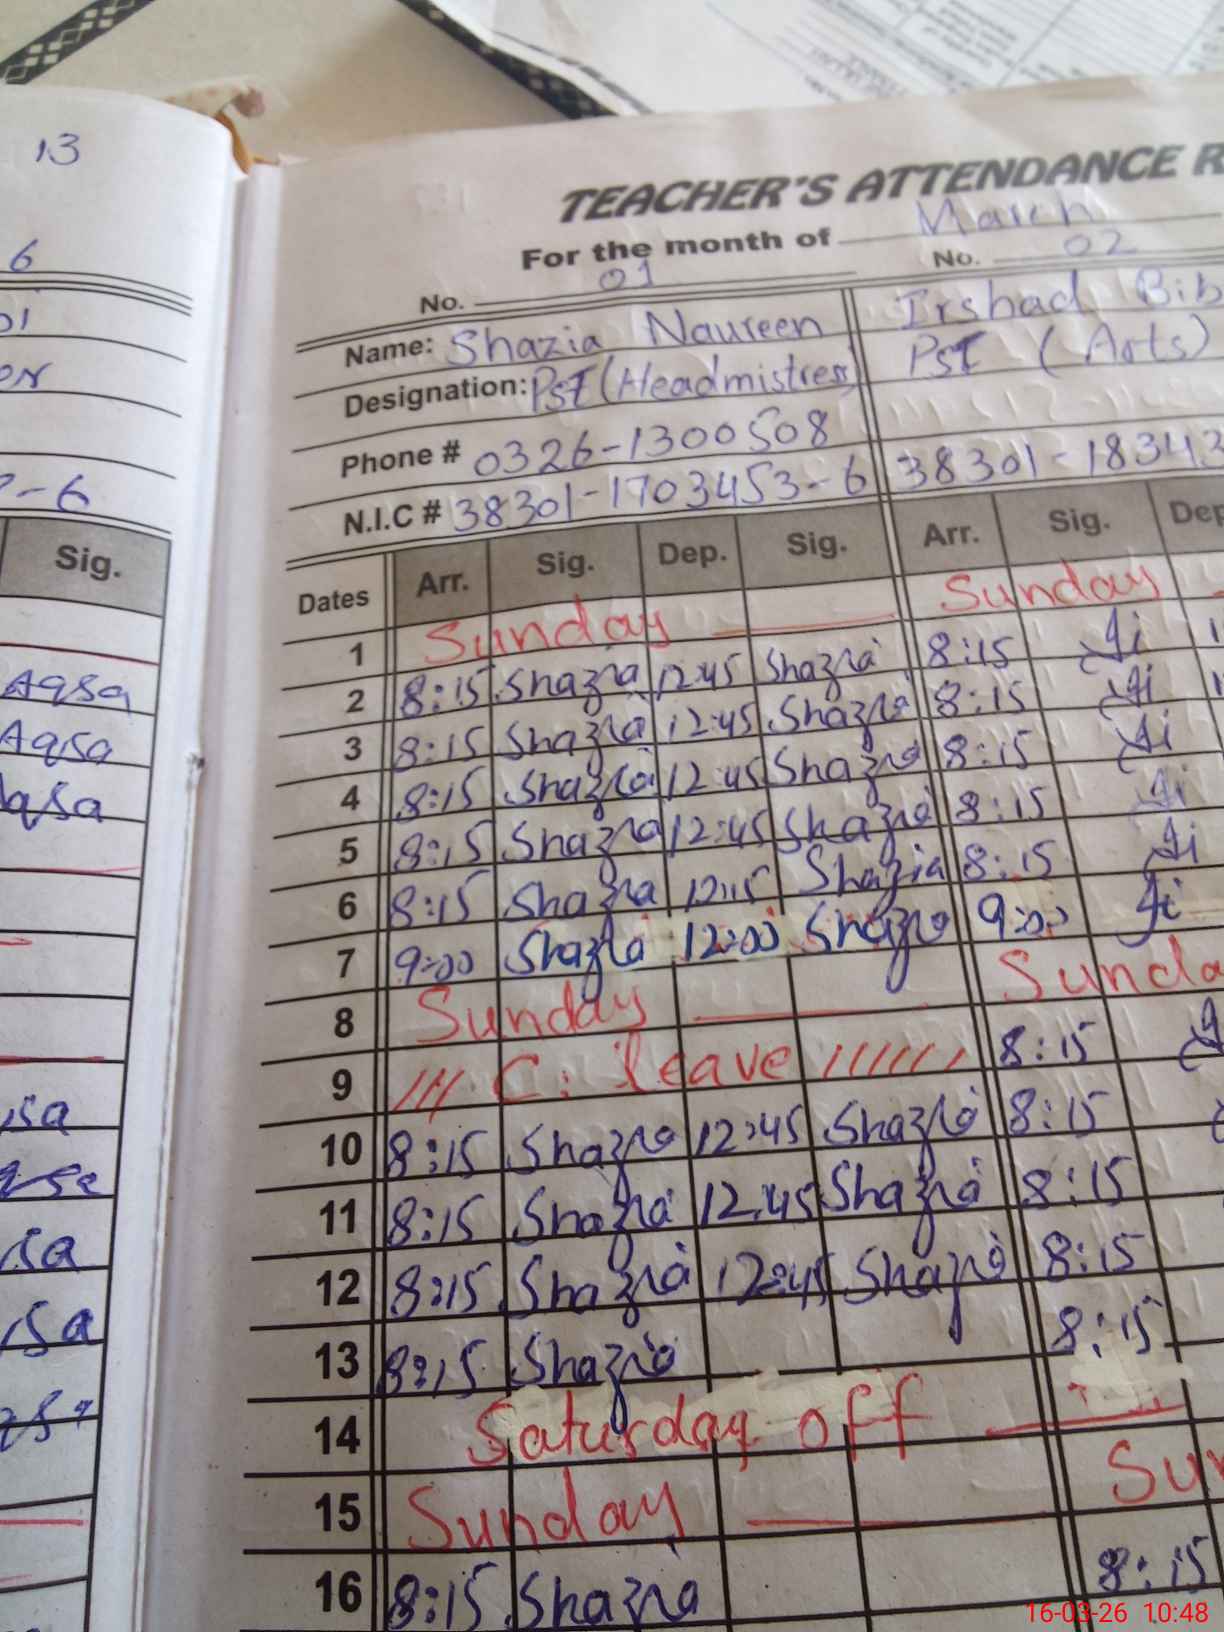 13
6
-6
Sig.
Aqsa
Aqsa
TEACHER'S ATTENDANCE R
For the month of March
No. 01 No. 02
Name: Shazia Naureen Irshad Bib
Designation: PST (Headmistress) PST (Arts)
Phone # 0326-1300508
N.I.C # 38301-1703453-6 38301-18343
Dates Arr. Sig. Dep. Sig. Arr. Sig. Dep
1 Sunday Sunday
2 8:15 Shazia 12:45 Shazia 8:15
3 8:15 Shazia 12:45 Shazia 8:15
4 8:15 Shazia 12:45 Shazia 8:15
5 8:15 Shazia 12:45 Shazia 8:15
6 8:15 Shazia 12:15 Shazia 8:15
7 9:00 Shazia 12:00 Shazia 9:00
8 Sunday Sunda
9 C. leave 8:15
10 8:15 Shazia 12:45 Shazia 8:15
11 8:15 Shazia 12:45 Shazia 8:15
12 8:15 Shazia 12:45 Shazia 8:15
13 8:15 Shazia 8:15
14 Saturday off
15 Sunday Sun
16 8:15 Shazia 8:15
16-03-26 10:48